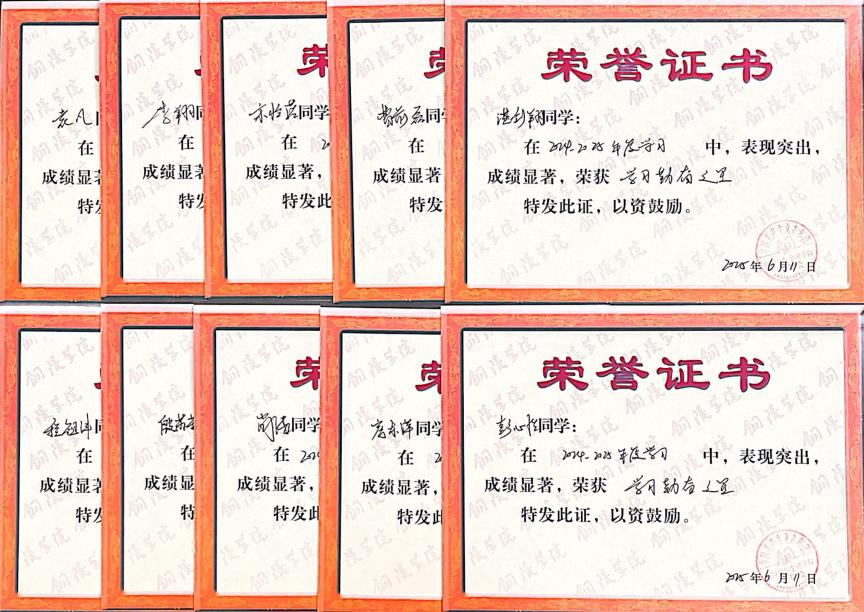 袁凡同
在
成绩显著
特发
李翔同
在
成绩显著
特发
荣
同学
在 20
成绩显著，
特发此
同学
在
成绩显著，
特发
荣誉证书
洪彭翔同学：
在 2024-2025 年度学习 中，表现突出，
成绩显著，荣获 学习勤奋之星
特发此证，以资鼓励。
2025年6月11日
在
成绩显著
特发
在
成绩显著
特
荣
同学
在 202
成绩显著，
特发此
荣
唐东洋同学
在 2
成绩显著，
特发此
荣誉证书
彭心怡同学：
在 2024-2025 年度学习 中，表现突出，
成绩显著，荣获 学习勤奋之星
特发此证，以资鼓励。
2025年6月11日
铜陵学院